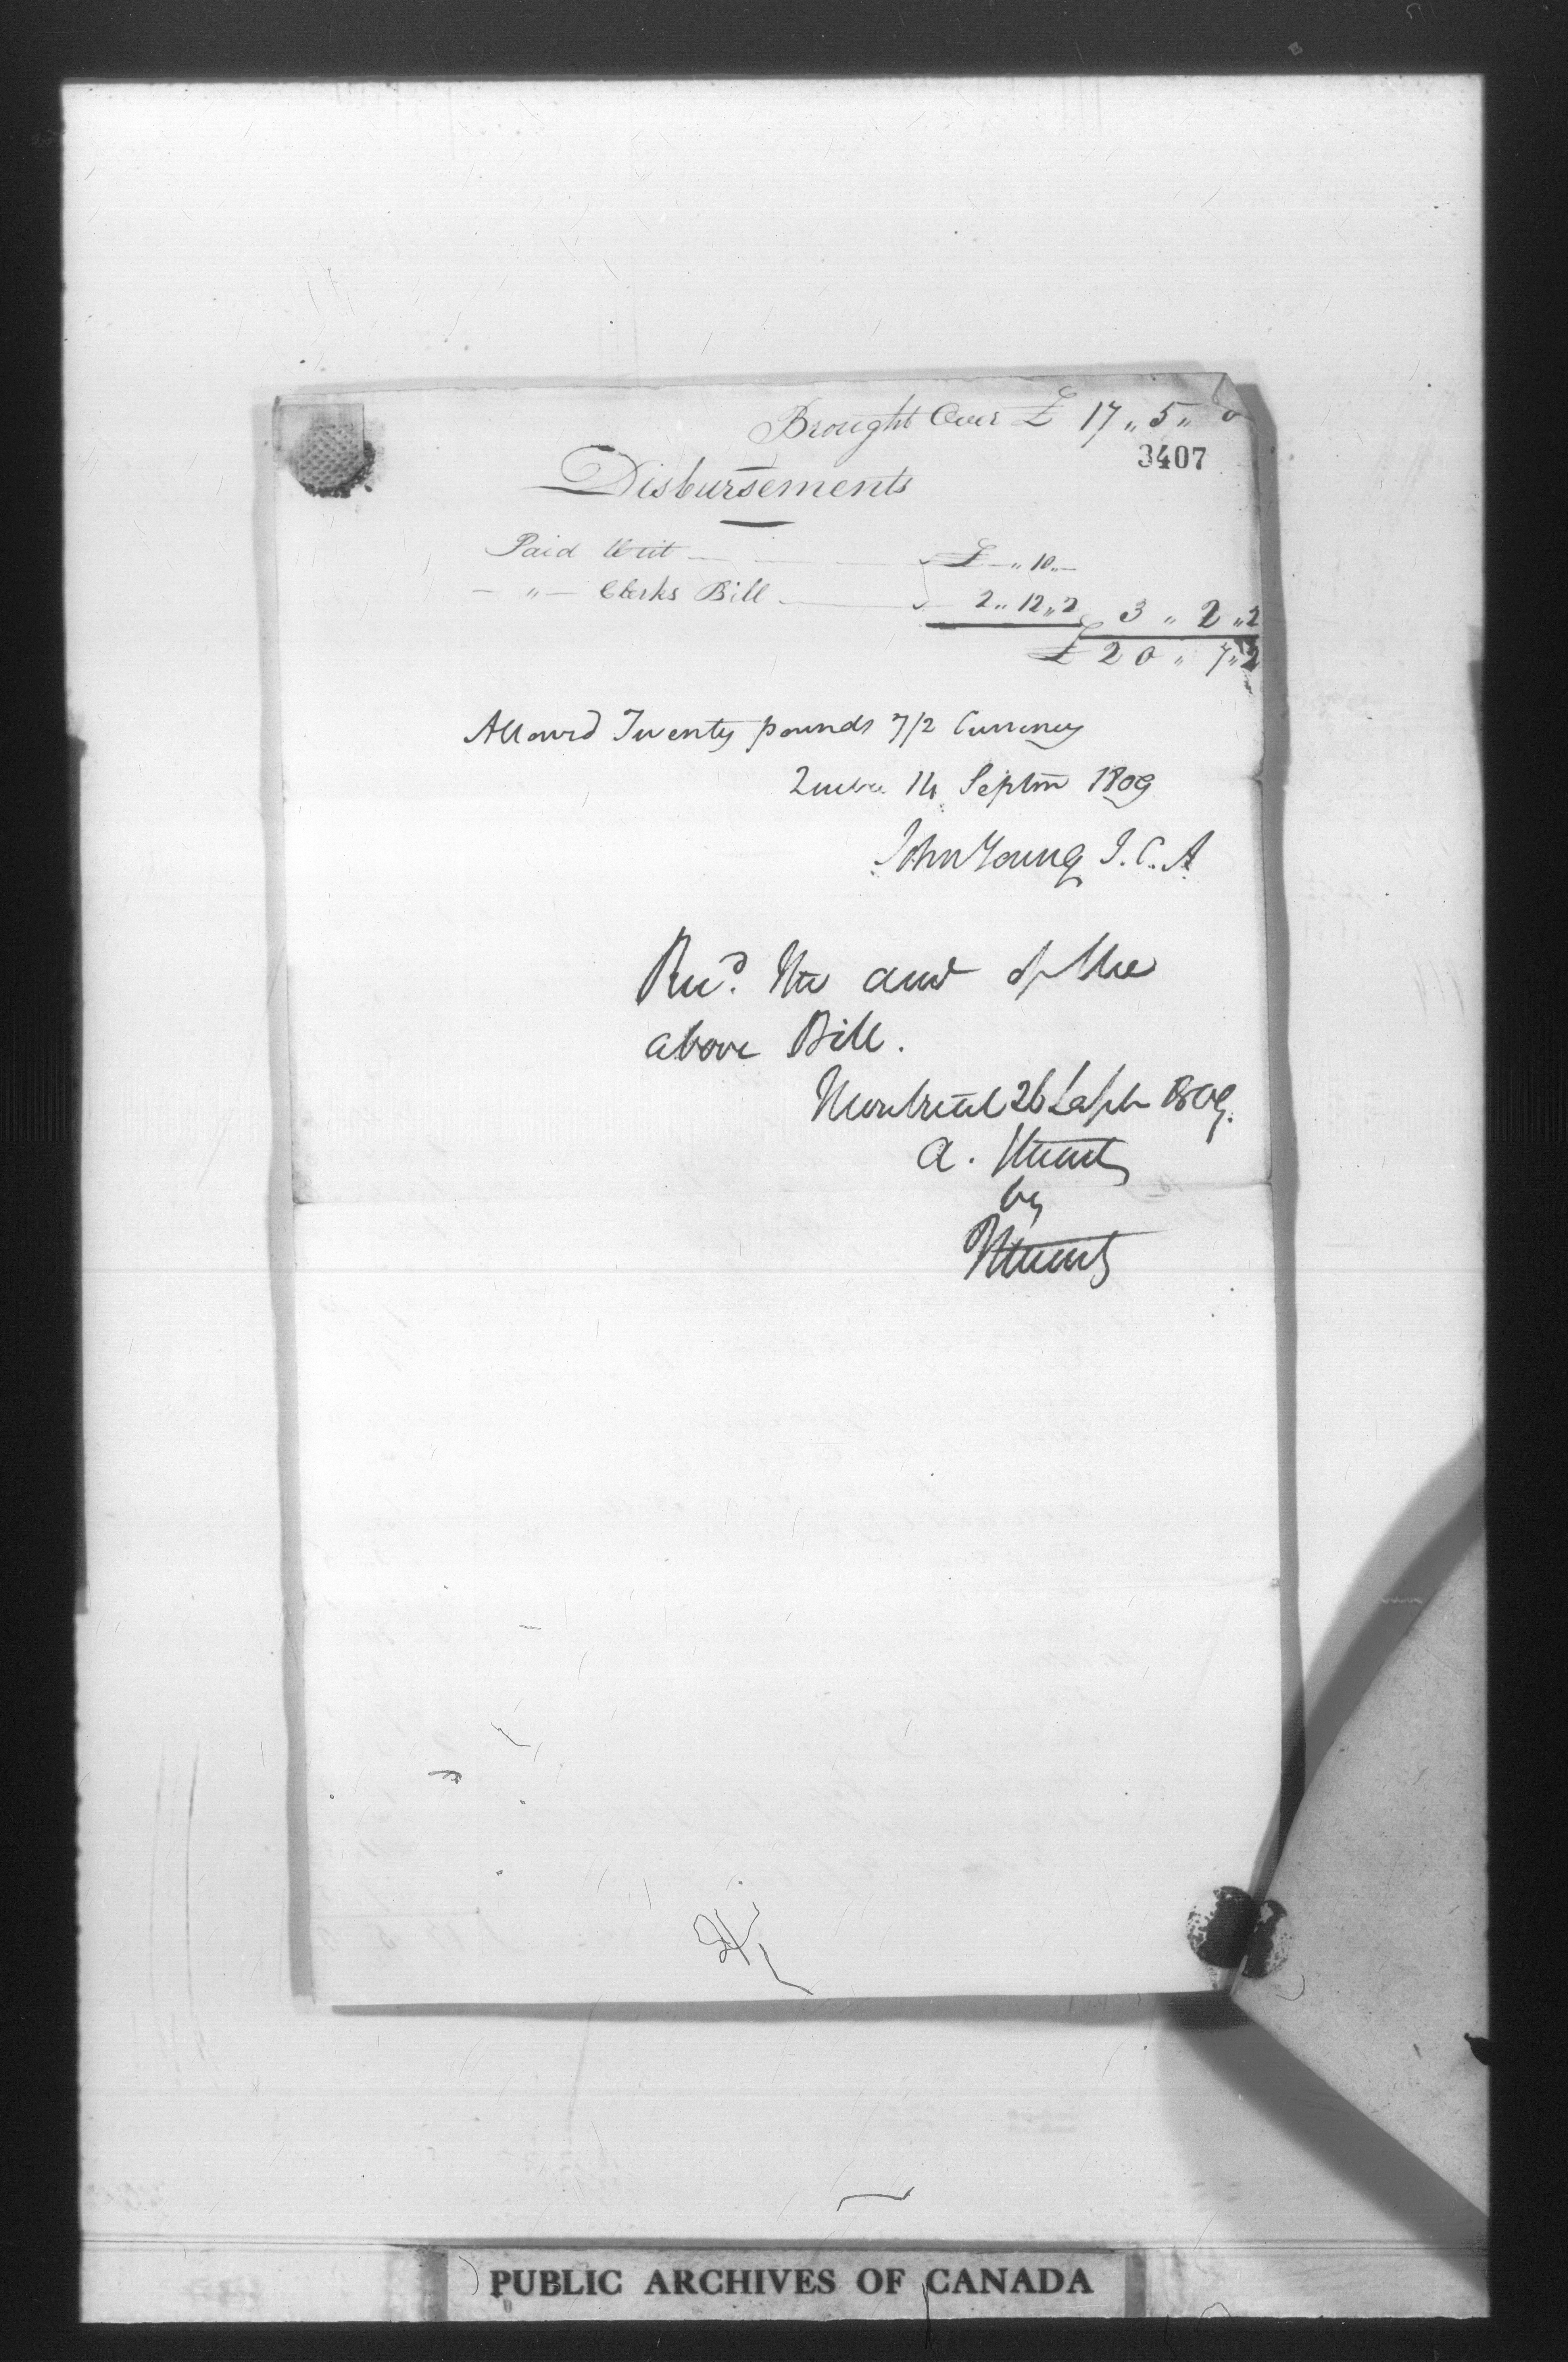 Brought Over £ 17 ,, 5 ,, 0
3407
Disbursements
Paid Writ — £ — ,, 10 ,, —
— ,, — Clerks Bill — 2 ,, 12 ,, 2 3 ,, 2 ,, 2
£ 20 ,, 7 ,, 2
Allowed Twenty pounds 7/2 Currency
Quebec 14 Septm 1809
John Young J. C. A
Recd. the amt of the
above Bill.
Montreal 26 Septr 1809.
A. Stuart
by
Stuart
PUBLIC ARCHIVES OF CANADA